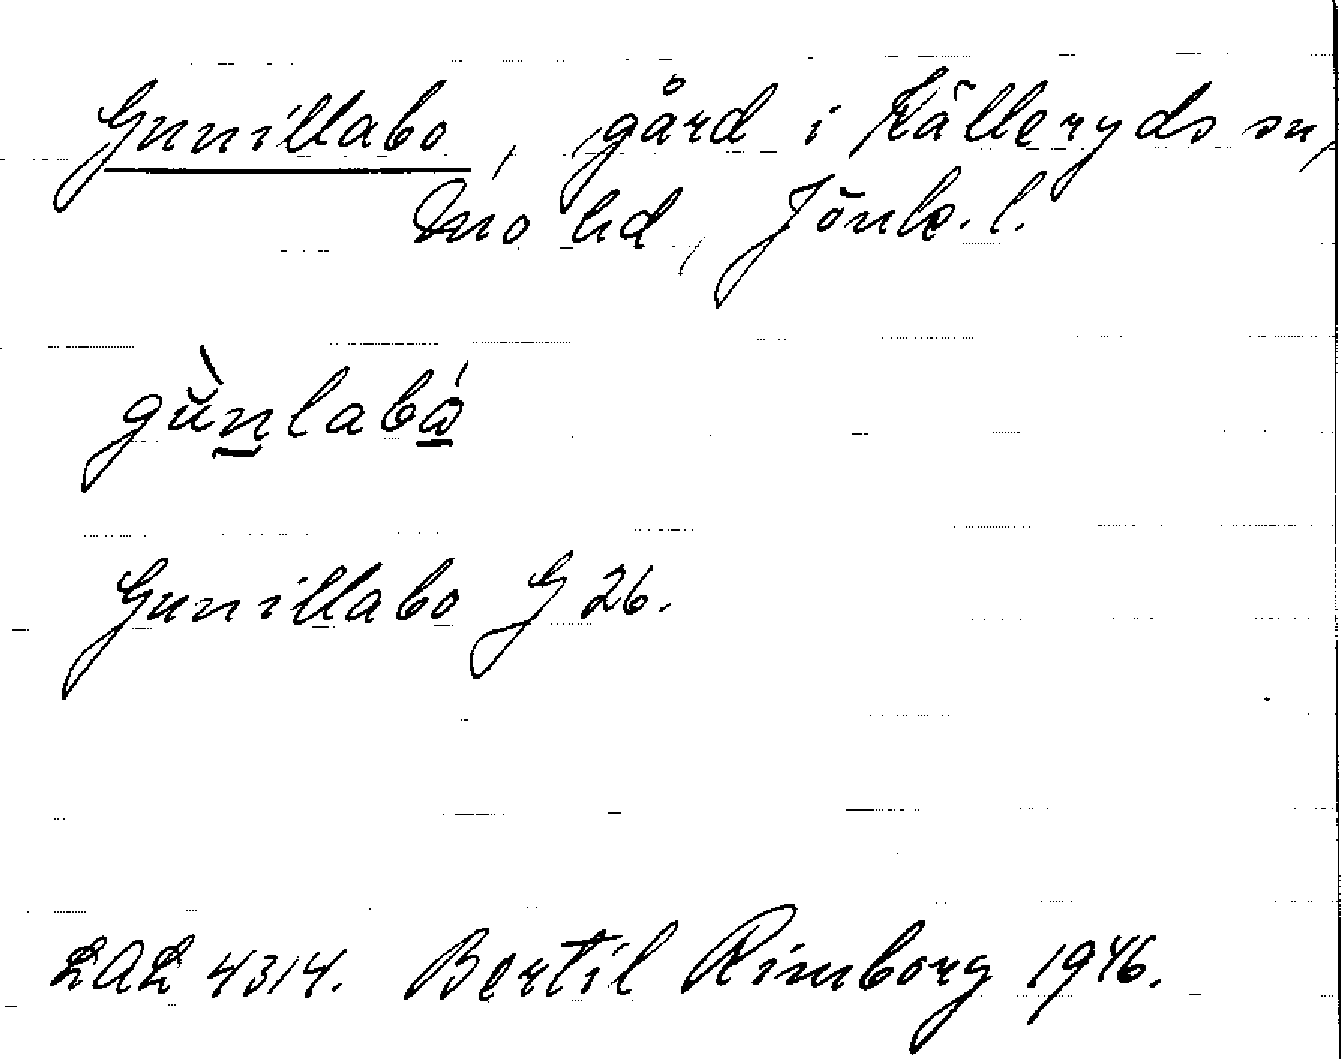 Gunillabo, gård i Kålleryds sn,
Mo hd, Jönk. l.
gùnlabǻ
Gunillabo G 26.
LAL 4314. Bertil Rimborg 1946.